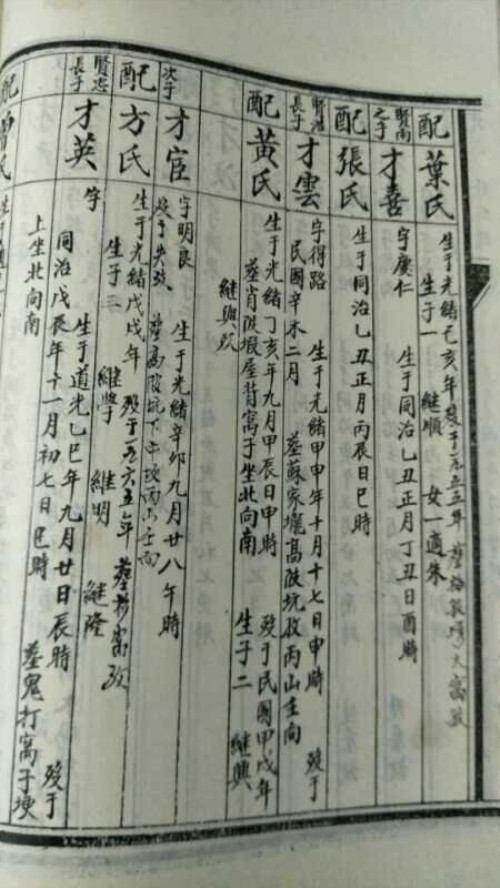 配 葉氏 生于光緒己亥年 殁于一九五五年
生子一 継順 女一適朱
賢尚之子 才善 字慶仁 生于同治乙丑正月丁丑日酉時
配 張氏 生于同治乙丑正月丙辰日巳時
長子 才雲 字得路 生于光緒甲申年十月十七日申時 殁于
民國辛未二月 塟蘇家壠高陂坑 丙山壬向
配 黃氏 生于光緒丁亥年九月甲辰日申時 殁于民國甲戍年
塟肖陂塅屋背窩子坐北向南 生子二 継興
継興
次子 才宦 字明良 生于光緒辛卯九月廿八午時
殁于失 塟高陂坑下 丙山壬向
配 方氏 生于光緒戊戍年 殁于一九六五年
生子三 継學 継明 継隆
賢忠長子 才英 字 生于道光乙巳年九月廿日辰時 殁于
同治戊辰年十一月初七日巳時 塟鬼打窩子埂
上坐北向南
配 氏